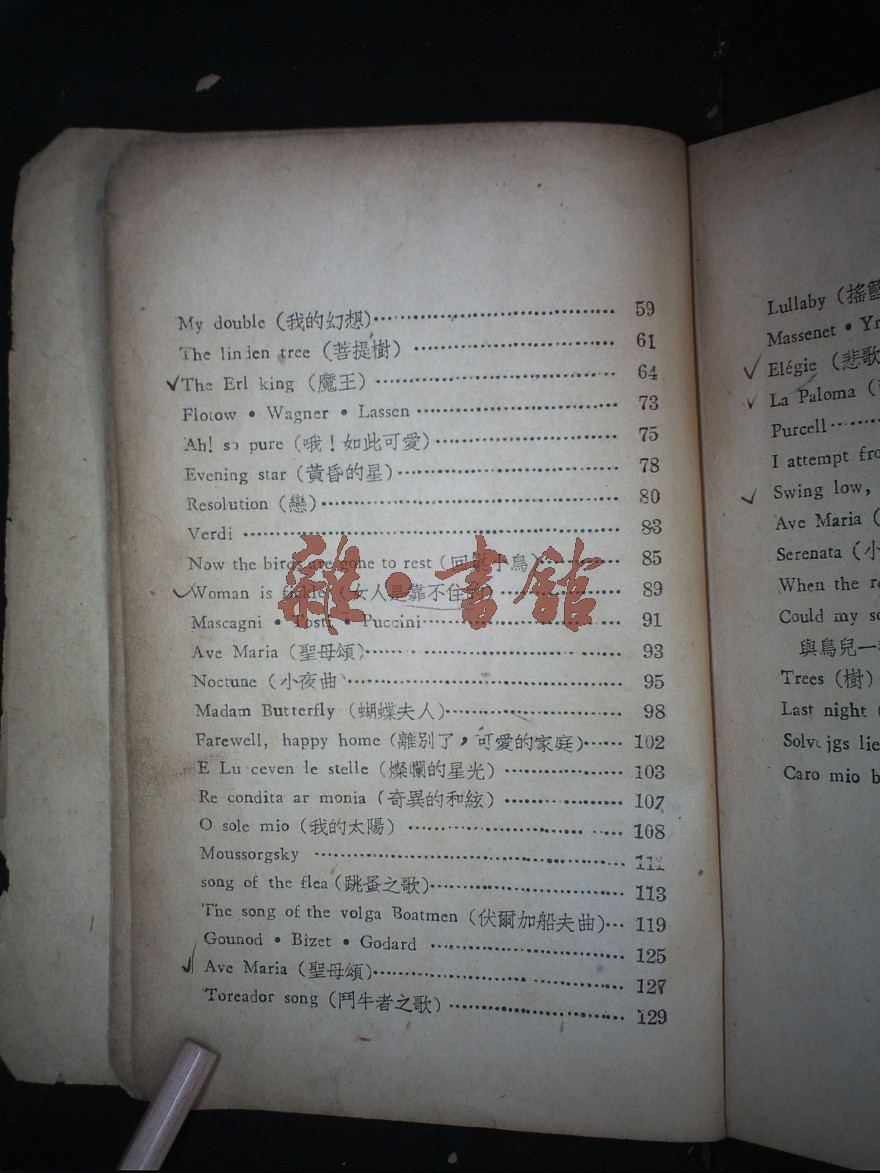 My double (我的幻想) 59
The linden tree (菩提樹) 61
The Erl king (魔王) 64
Flotow • Wagner • Lassen 73
Ah! so pure (哦！如此可愛) 75
Evening star (黃昏的星) 78
Resolution (戀) 80
Verdi 83
Now the birds are gone to rest (回巢小鳥) 85
Woman is fickle (女人是靠不住的) 89
Mascagni • Tosti • Puccini 91
Ave Maria (聖母頌) 93
Noctune (小夜曲) 95
Madam Butterfly (蝴蝶夫人) 98
Farewell, happy home (離別了，可愛的家庭) 102
E Lu ceven le stelle (燦爛的星光) 103
Re condita ar monia (奇異的和絃) 107
O sole mio (我的太陽) 108
Moussorgsky 111
song of the flea (跳蚤之歌) 113
The song of the volga Boatmen (伏爾加船夫曲) 119
Gounod • Bizet • Godard 125
Ave Maria (聖母頌) 127
Toreador song (鬥牛者之歌) 129
雜·書館
Lullaby (搖籃
Massenet • Yr
Elégie (悲歌
La Paloma (
Purcell
I attempt fro
Swing low,
Ave Maria (
Serenata (小
When the r
Could my s
與鳥兒一
Trees (樹)
Last night (
Solvejgs lie
Caro mio b